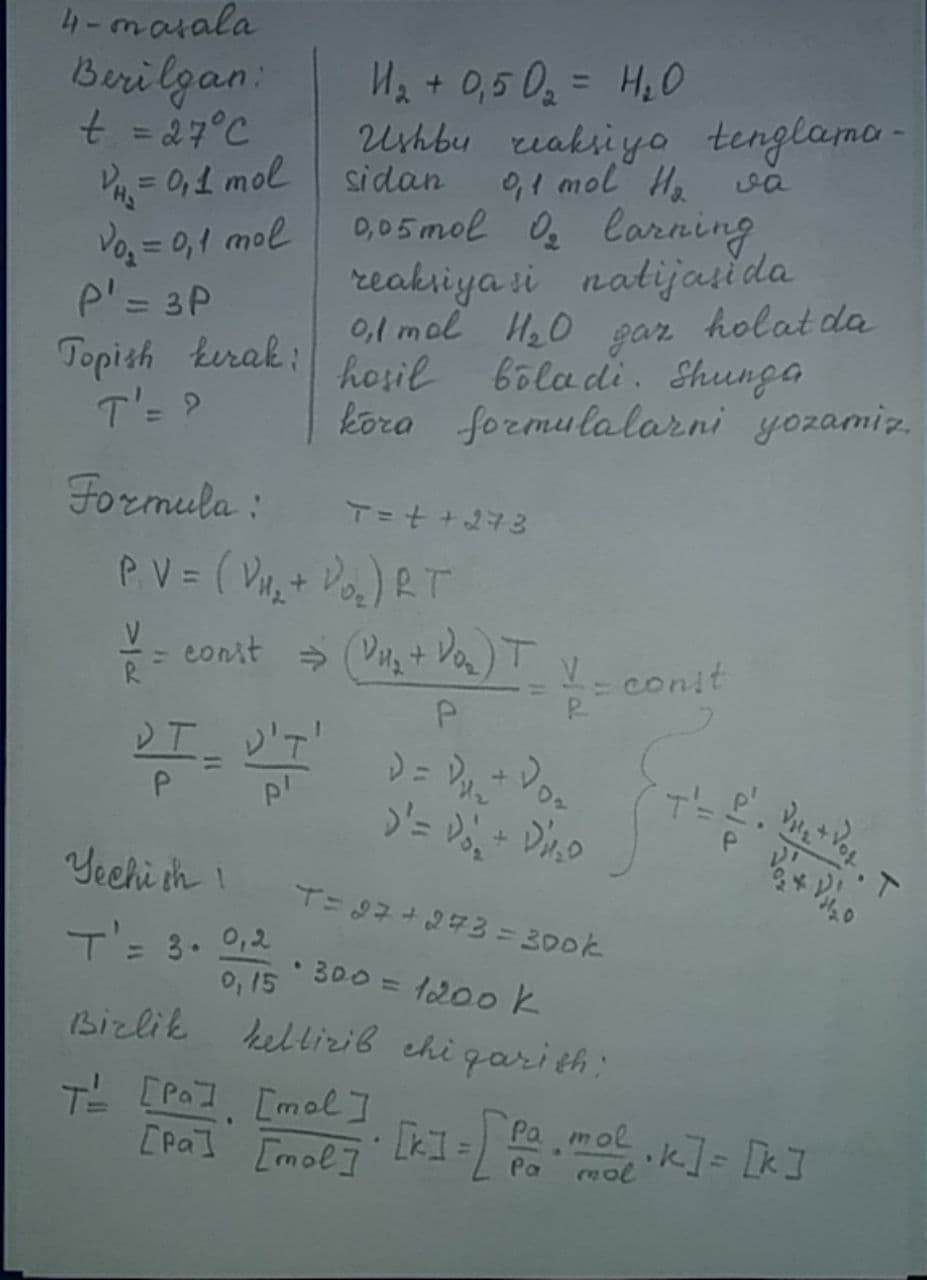 4-masala
Berilgan:
t = 27°C
ν_H₂ = 0,1 mol
ν_O₂ = 0,1 mol
P' = 3P
Topish kerak:
T' = ?
H₂ + 0,5 O₂ = H₂O
Ushbu reaksiya tenglama-
sidan 0,1 mol H₂ va
0,05 mol O₂ larning
reaksiyasi natijasida
0,1 mol H₂O gaz holatda
hosil bōladi. Shunga
kōra formulalarni yozamiz.
Formula: T = t + 273
P.V = (ν_H₂ + ν_O₂) R T
V/R = const ⇒ (ν_H₂ + ν_O₂) T / P = V/R = const
νT/P = ν'T'/P'
ν = ν_H₂ + ν_O₂
ν' = ν'_O₂ + ν'_H₂O
T' = P'/P · (ν_H₂ + ν_O₂)/(ν'_O₂ + ν'_H₂O) · T
Yechish: T = 27 + 273 = 300K
T' = 3 · 0,2/0,15 · 300 = 1200 K
Birlik keltirib chiqarish:
T' = [Pa]/[Pa] · [mol]/[mol] · [k] = [Pa/Pa · mol/mol · k] = [k]